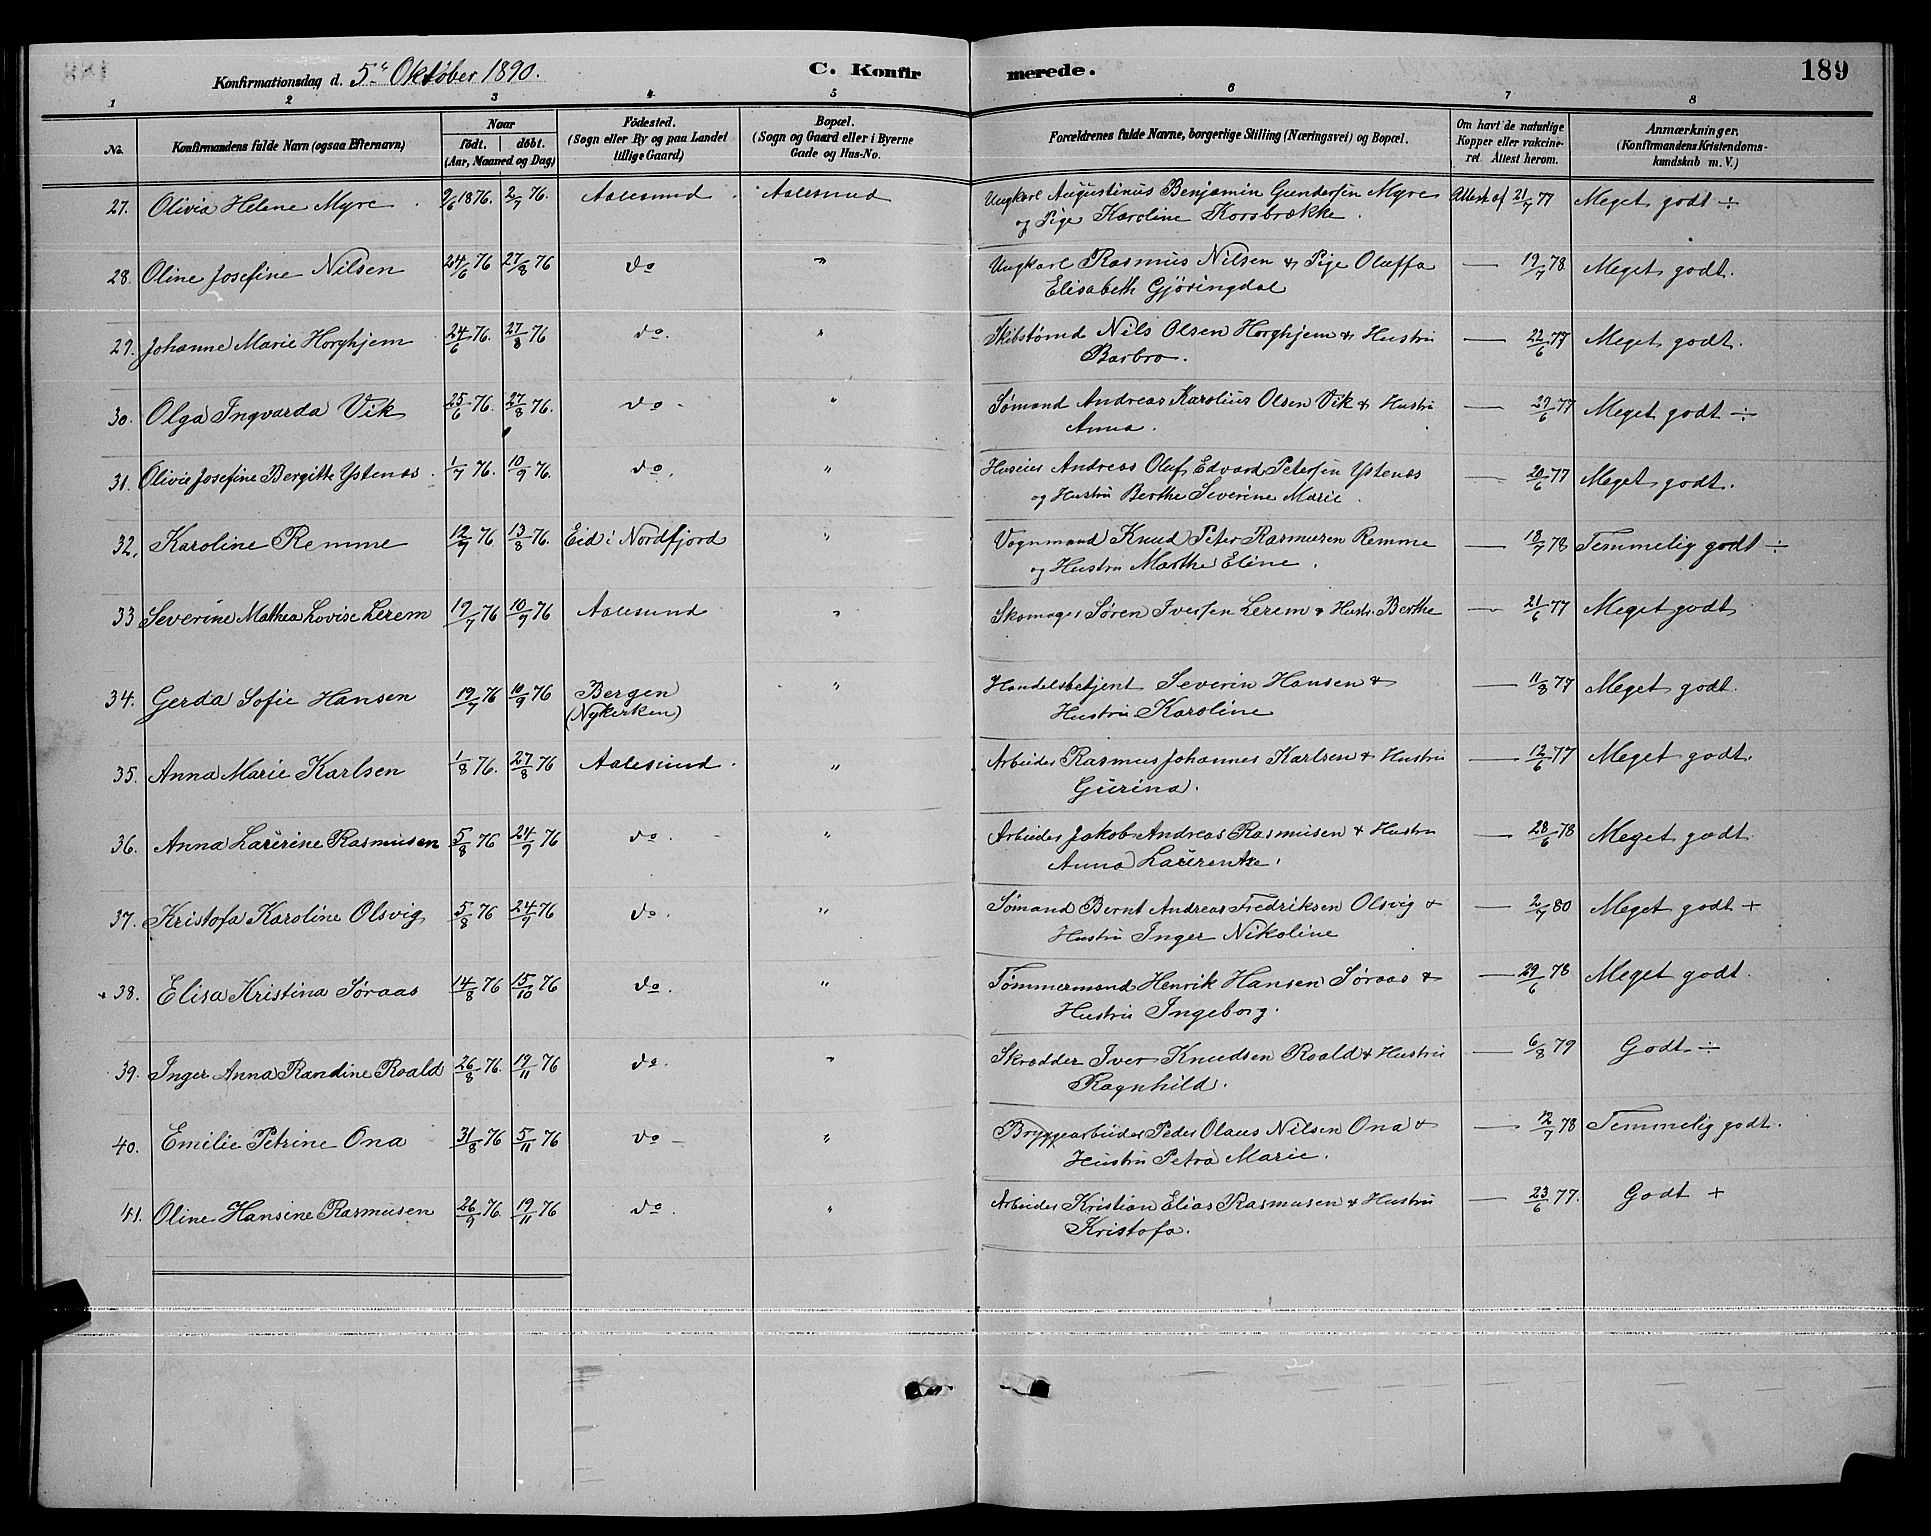 Konfirmationsdag d. 5te Oktober 1890.
C. Konfirmerede.
189
1 2 3 4 5 6 7 8
No.
Konfirmandens fulde Navn (ogsaa Efternavn)
Naar
födt. döbt.
(Aar, Maaned og Dag)
Födested.
(Sogn eller By og paa Landet
tillige Gaard)
Bopæl.
(Sogn og Gaard eller i Byerne
Gade og Hus-No.
Forældrenes fulde Navne, borgerlige Stilling (Næringsvei) og Bopæl.
Om havt de naturlige
Kopper eller vakcine-
ret. Attest herom.
Anmærkninger.
(Konfirmandens Kristendoms-
kundskab m. V.)
27. Olivia Helene Myre 9/6 1876. 2/7 76. Aalesund Aalesund Ungkarl Augustinus Benjamin Gundersen Myre Attest af 21/7 77 Meget godt ÷
og Pige Karoline Korsbrække.
28. Oline Josefine Nilsen 24/6 76 27/8 76 do " Ungkarl Rasmus Nilsen & Pige Oleffa — 19/7 78 Meget godt.
Elisabeth Gjöringdal
29. Johanne Marie Horghjem 24/6 76. 27/8 76 do. " Skibstømd Nils Olsen Horghjem & Hustru — 22/6 77 Meget godt.
Barbro.
30. Olga Ingvarda Vik 25/6 76. 27/8 76. do " Sømand Andreas Karolius Olsen Vik & Hustru — 27/6 77 Meget godt ÷
Anna.
31. Olivie Josefine Bergitte Ystenæs 1/7 76. 10/9 76. do. " Huseier Andreas Oluf Edvard Petersen Ystenæs — 20/6 77 Meget godt.
og Hustru Berthe Severine Marie.
32. Karoline Remme 12/7 76 13/8 76. Eid i Nordfjord " Vognmand Knud Peter Rasmusen Remme — 18/7 78 Temmelig godt ÷
og Hustru Marthe Eline.
33 Severine Mathea Lovise Lerem 19/7 76 10/9 76 Aalesund " Skomager Søren Iversen Lerem & Hustr. Berthe — 21/6 77 Meget godt
34. Gerda Sofie Hansen 19/7 76 10/9 76 Bergen " Handelsbetjent Severin Hansen & — 11/8 77 Meget godt.
(Nykirken) Hustru Karoline
35. Anna Marie Karlsen 1/8 76. 27/8 76 Aalesund. " Arbeider Rasmus Johannes Karlsen & Hustru — 12/6 77 Meget godt.
Gurina.
36. Anna Laurine Rasmusen 5/8 76 24/9 76 do. " Arbeider Jakob Andreas Rasmusen & Hustru — 28/6 78 Meget godt
Anna Laurentse.
37. Kristofa Karoline Olsvig 5/8 76 24/9 76 do. " Sømand Bernt Andreas Fredriksen Olsvig & — 2/7 80 Meget godt +
Hustru Inger Nikoline
38. Elisa Kristina Søraas 14/8 76 15/10 76 do. " Tømmermand Henrik Hansen Søraas & — 29/6 78 Meget godt.
Hustru Ingeborg.
39. Inger Anna Randine Roald 26/8 76. 19/11 76 do. " Skrædder Iver Knudsen Roald & Hustru — 6/8 79 Godt ÷
Ragnhild.
40. Emilie Petrine Ona 31/8 76 5/11 76 do — " Bryggearbeider Peder Olaus Nilsen Ona & — 12/7 78 Temmelig godt.
Hustru Petra Marie.
41. Oline Hansine Rasmusen 26/9 76. 19/11 76 do. " Arbeider Kristian Elias Rasmusen & Hustru — 23/6 77. Godt +
Kristofa.